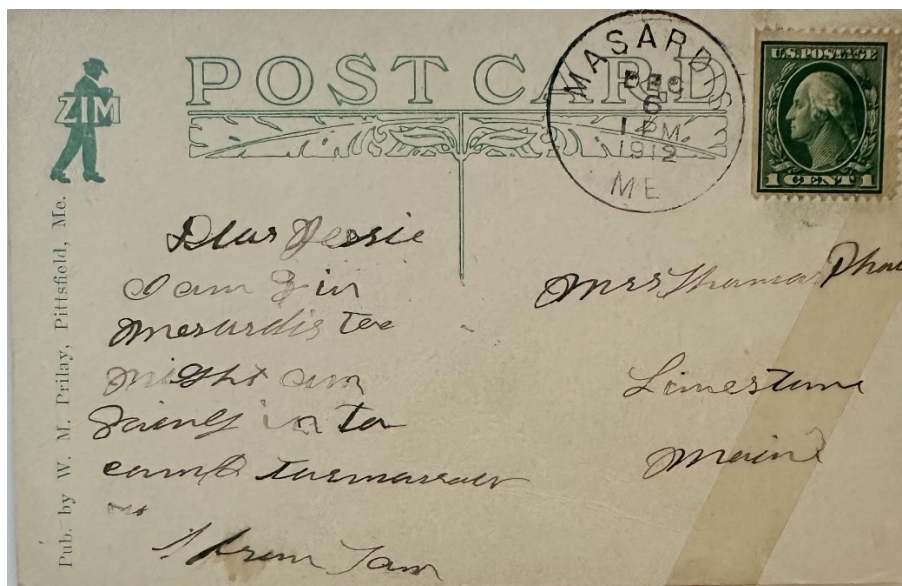 POST CARD
ZIM
Pub. by W. M. Prilay, Pittsfield, Me.
MASARDIS
DEC
6
1 PM
1912
ME
U.S. POSTAGE
1 CENT 1
Dear Jessie
I am in
Mesardis too
night am
going in to
camp tormarrow
From Tom
Mrs Thomas
Limestone
Maine